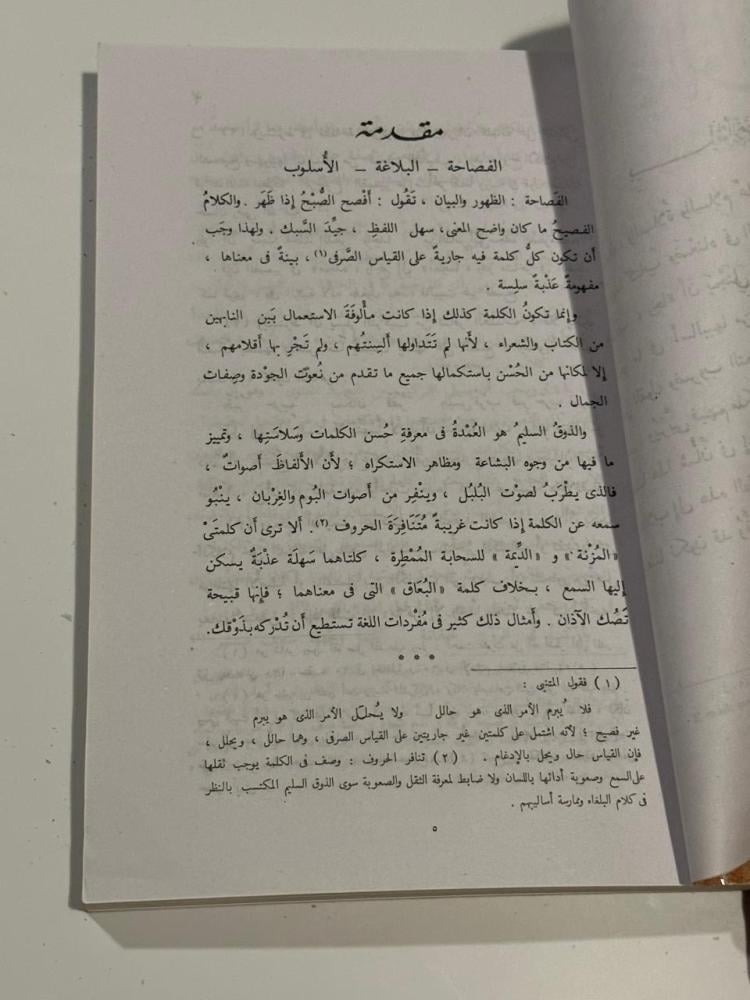 مقدمة
الفصاحة – البلاغة – الأُسلوب
الفَصاحة : الظهور والبيان ، تَقُول : أَفْصح الصُّبْحُ إِذا ظَهَر . والكلامُ
الفصيحُ ما كان واضح المعنى، سهل اللفظِ ، جيِّدَ السَّبك . ولهذا وجَب
أَن تكون كلُّ كلمة فيه جاريةً على القياس الصَّرفى(١) ، بينةً فى معناها ،
مفهومةً عَذْبةً سلِسة .
وإِنما تكونُ الكلمة كذلك إِذا كانت مأْلوفَةَ الاستعمال بَين النابهين
من الكتاب والشعراء ، لأَنها لم تَتَداولها أَلسِنتُهم ، ولم تَجْرِ بها أَقلامهم ،
إِلا لمكانها من الحُسْن باستكمالها جميع ما تقدم من نُعوُت الجوْدة وصِفات
الجمال .
والذوقُ السليمُ هو العُمْدةُ فى معرفةِ حُسن الكلمات وسَلاسَتِها ، وتمييز
ما فيها من وجوه البشاعة ومظاهر الاستكراه ؛ لأَن الأَلفاظَ أَصواتٌ ،
فالذى يطْرَبُ لصوْت البُلبُل ، وينْفِر من أَصوات البُوم والغِرْبان ، ينْبُو
سمعه عن الكلمة إِذا كانت غريبةً مُتَنَافِرَةَ الحروف (٢). أَلا ترى أَن كلمتَىْ
«المُزْنة» و «الدِّيمة» للسحابة المُمْطِرة ، كلتاهما سَهلَة عذْبَةٌ يسكن
إليها السمع ، بخلاف كلمة «البُعَاق» التى فى معناهما ؛ فإِنها قبيحة
تَصُك الآذان . وأَمثال ذلك كثير فى مُفْردات اللغة تستطيع أَن تُدْركه بذَوْقك.
• • •
(١) فقول المتنبى :
فلا يُبرم الأمر الذى هو حالل ولا يُحلَل الأمر الذى هو يبرم
غير فصيح ؛ لأنه اشتمل على كلمتين غير جاريتين على القياس الصرفى ، وهما حالل ، ويحلل ،
فإن القياس حال ويحل بالإدغام . (٢) تنافر الحروف : وصف فى الكلمة يوجب ثقلها
على السمع وصعوبة أدائها باللسان ولا ضابط لمعرفة الثقل والصعوبة سوى الذوق السليم المكتسب بالنظر
فى كلام البلغاء وممارسة أساليبهم .
٥